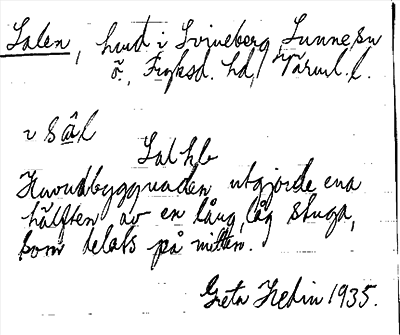 Salen, hmd i Svineberg, Sunne sn
ö., Fryksd. hd, Värml. l.
i Sål
Sal hb
Huvudbyggnaden utgjorde ena
hälften av en lång, låg stuga,
som delats på mitten.
Greta Hedin 1935.